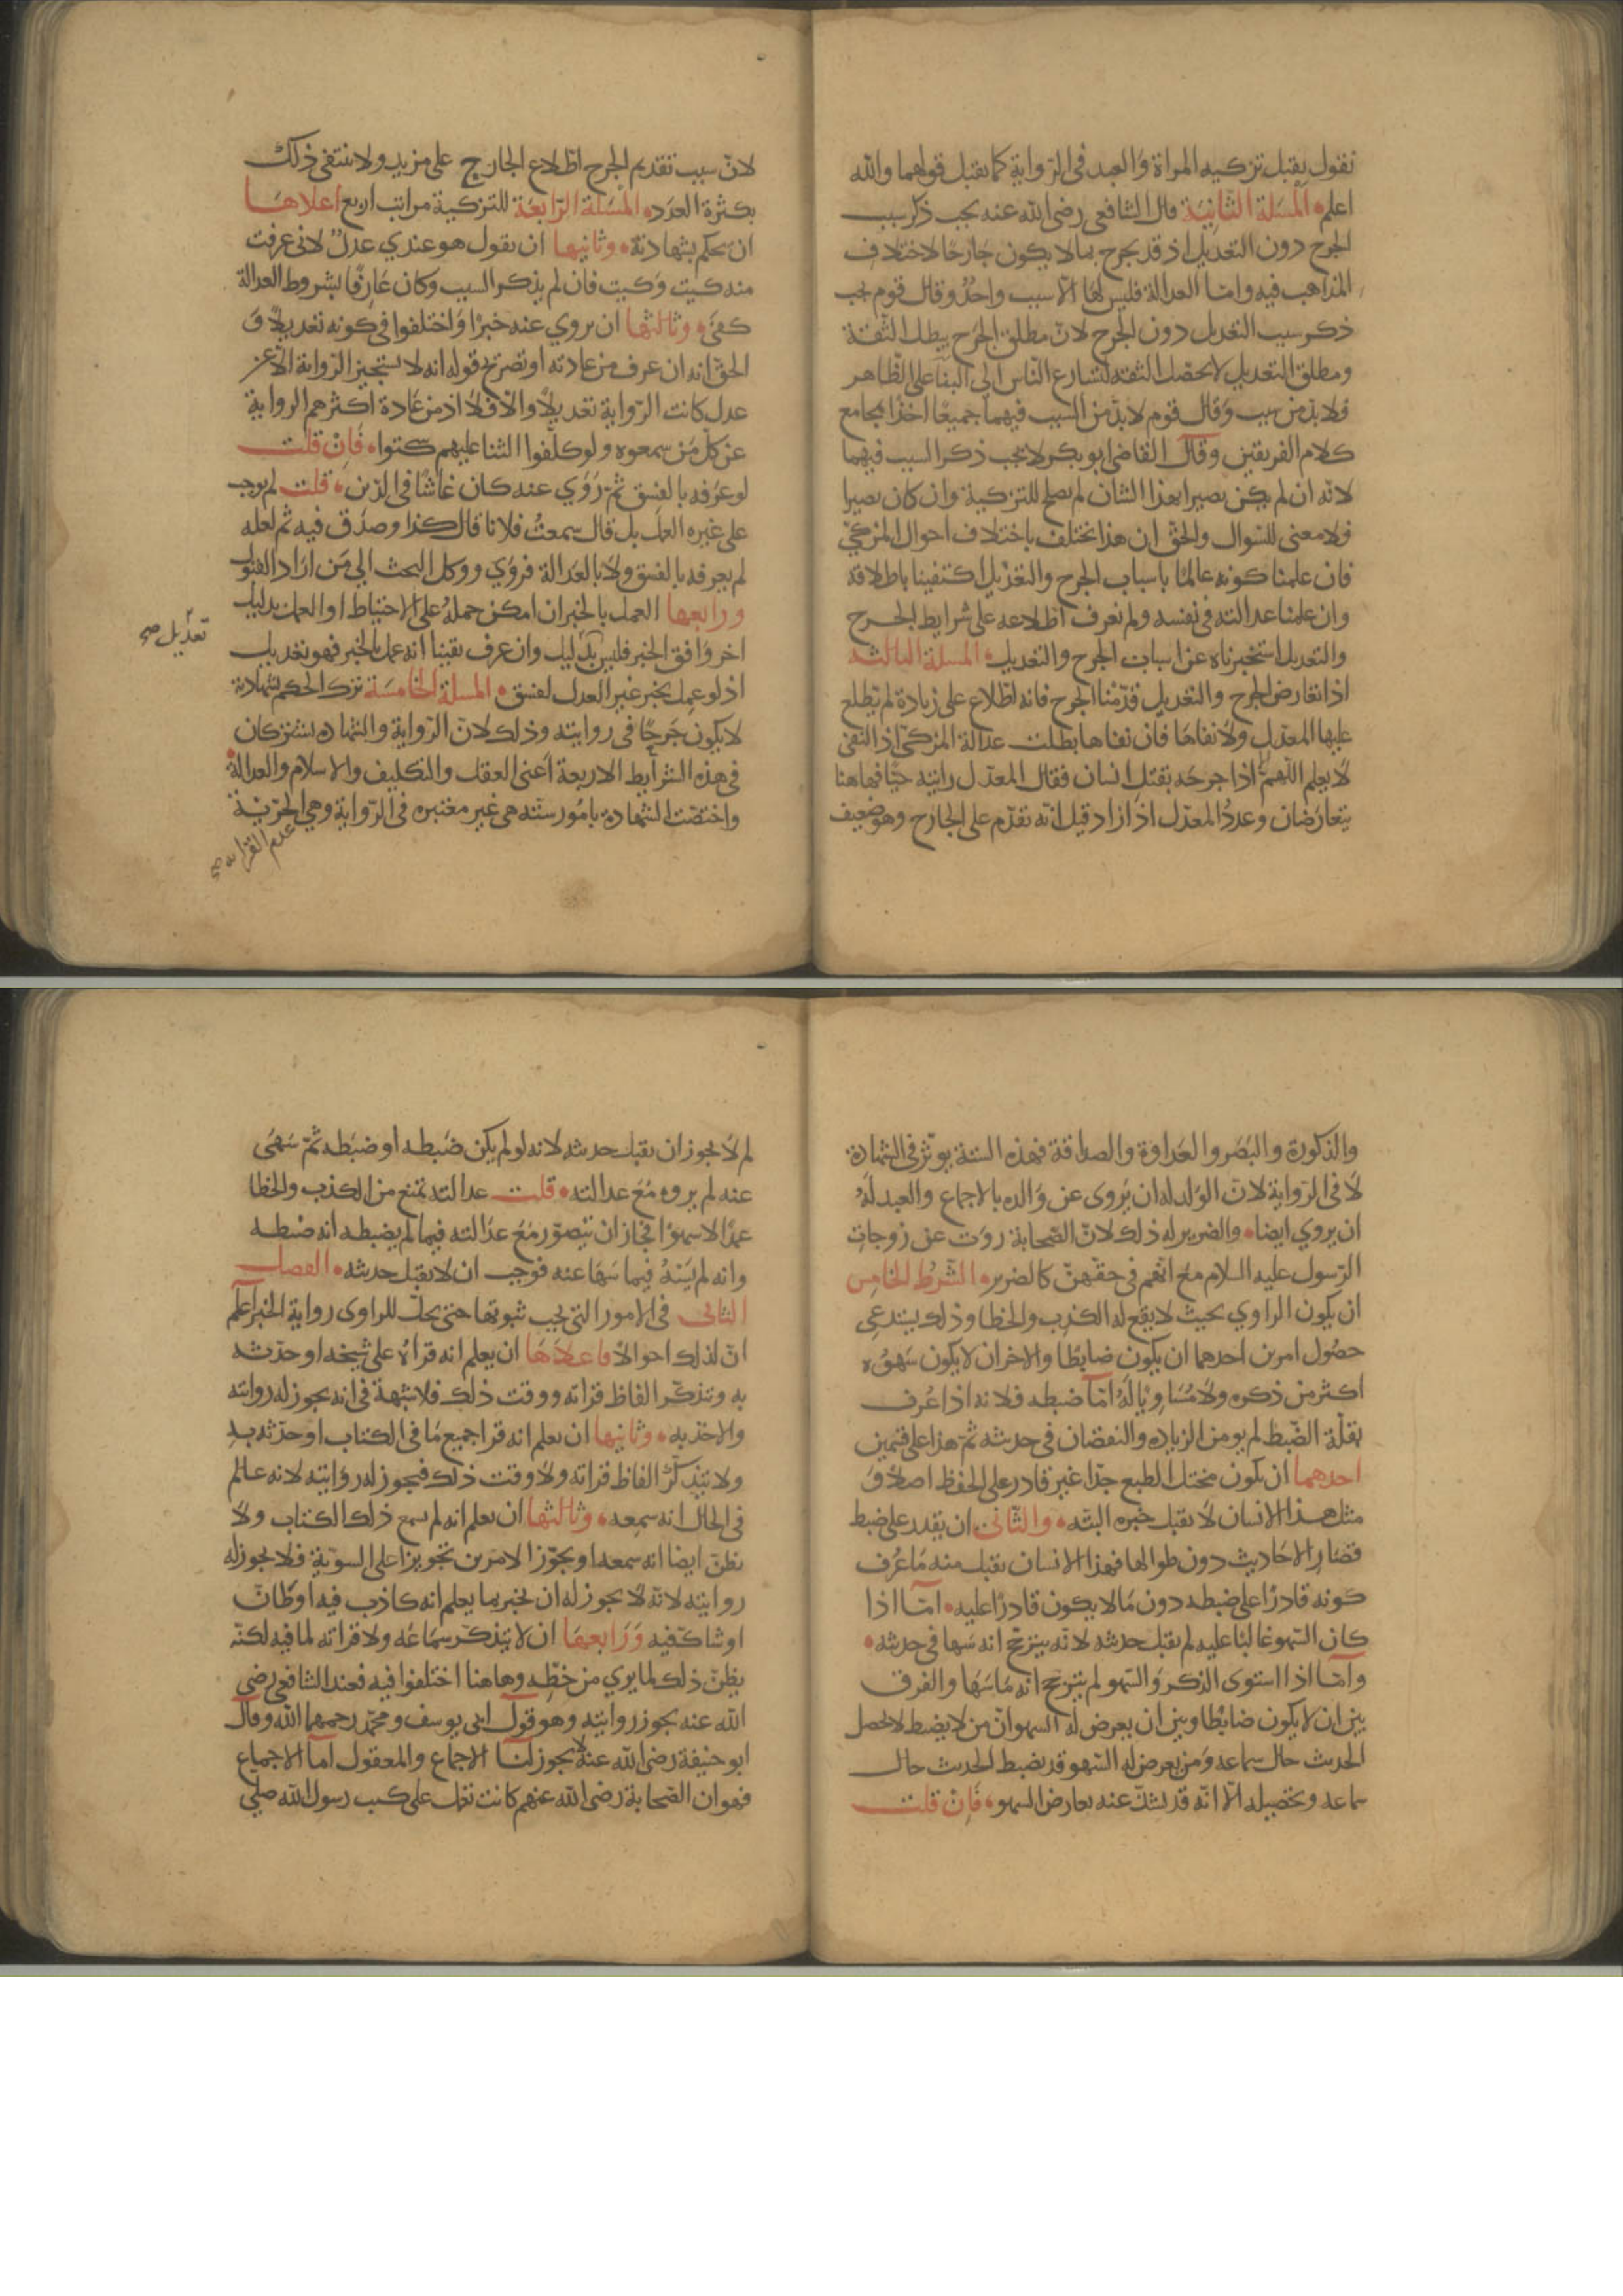 نقول يقبل تزكيه المراة والعبد فى الرواية كما يقبل قولهما والله
اعلم المسلة الثانية قال الشافعى رضى الله عنه يجب ذكر سبب
الجرح دون التعديل اذ قد يجرح بما لا يكون جارحا لاختلاف
المذاهب فيه واما العدالة فليس لها الا سبب واحد وقال قوم يجب
ذكر سبب التعديل دون الجرح لان مطلق الجرح يبطل الثقة
ومطلق التعديل لا يحصل الثقه لتسارع الناس الى البنا على الظاهر
فلا بد من سبب وقال قوم لا بد من السبب فيهما جميعا اخذا بمجامع
كلام الفريقين وقال القاضى ابو بكر لا يجب ذكر السبب فيهما
لانه ان لم يكن بصيرا بهذا الشان لم يصلح للتزكية وان كان بصيرا
فلا معنى للسوال والحق ان هذا يختلف باختلاف احوال المزكى
فان علمنا كونه عالما باسباب الجرح والتعديل اكتفينا باطلاقه
وان علمنا عدالته فى نفسه ولم نعرف اطلاعه على شرايط الجرح
والتعديل استخبرناه عن اسباب الجرح والتعديل المسلة الثالثه
اذا تعارض الجرح والتعديل قدمنا الجرح فانه اطلاع على زيادة لم يطلع
عليها المعدل ولا نفاها فان نفاها بطلت عدالة المزكى اذ النفى
لا يعلم اللهم اذا جرحه بقتل انسان فقال المعدل رايته حيا فهاهنا
يتعارضان وعدد المعدل اذا زاد قيل انه تقدم على الجارح وهو ضعيف
لان سبب تقديم الجرح اطلاع الجارح على مزيد ولا ينتفى ذلك
بكثرة العدد المسلة الرابعة للتزكية مراتب اربع اعلاها
ان يحكم بشهادته وثانيها ان يقول هو عندي عدل لانى عرفت
منه كيت وكيت فان لم يذكر السبب وكان عارفا بشروط العدالة
كفى وثالثها ان يروي عنه خبرا واختلفوا فى كونه تعديلا و
الحق انه ان عرف من عادته او تصريح قوله انه لا يستجيز الرواية الا عن
عدل كانت الرواية تعديلا والا فلا اذ من عادة اكثرهم الرواية
عن كل من سمعوه ولو كلفوا الثنا عليهم سكتوا فان قلت
لو عرفه بالفسق ثم روي عنه كان غاشا فى الدين قلت لم يوجب
على غيره العمل بل قال سمعت فلانا قال كذا وصدق فيه ثم لعله
لم يعرفه بالفسق ولا بالعدالة فروي ووكل البحث الى من اراد القبول
ورابعها العمل بالخبر ان امكن حمله على الاحتياط او العمل بدليل
اخر وافق الخبر فليس بدليل وان عرف يقينا انه عمل بالخبر فهو تعديل
تعديل صح
اذ لو عمل بخبر غير العدل لفسق المسلة الخامسة ترك الحكم بشهادته
لا يكون جرحا فى روايته وذلك لان الرواية والشهاده يشتركان
فى هذه الشرايط الاربعة اعنى العقل والتكليف والاسلام والعدالة
واختصت الشهادة بامور ستة هى غير معتبره فى الرواية وهى الحرية
عدم القرابه صح
والذكورة والبصر والعداوة والصداقة فهذه الستة يوثر فى الشهادة
لا فى الرواية لان الولد له ان يروى عن والده بالاجماع والعبد له
ان يروي ايضا والضرير له ذلك لان الصحابة روت عن زوجات
الرسول عليه السلام مع انهم فى حقهن كالضرير الشرط الخامس
ان يكون الراوي بحيث لا يقع له الكذب والخطا وذلك يستدعى
حصول امرين احدهما ان يكون ضابطا والاخر ان لا يكون سهوه
اكثر من ذكره ولا مساويا له اما ضبطه فلانه اذا عرف
بقلة الضبط لم يومن الزياده والنقصان فى حديثه ثم هذا على قسمين
احدهما ان يكون مختل الطبع جدا غير قادر على الحفظ اصلا و
مثل هذا الانسان لا يقبل خبره البتة والثانى ان يقدر على ضبط
قصار الاحاديث دون طوالها فهذا الانسان يقبل منه ما عرف
كونه قادرا على ضبطه دون ما لا يكون قادرا عليه اما اذا
كان السهو غالبا عليه لم يقبل حديثه لانه يترجح انه سها فى حديثه
واما اذا استوى الذكر والسهو لم يترجح انه ما سها والفرق
بين ان لا يكون ضابطا وبين ان يعرض له السهو ان من لا يضبط لا يحصل
الحديث حال سماعه ومن يعرض له السهو قد يضبط الحديث حال
سماعه وتحصيله الا انه قد يشك عنه بعارض السهو فان قلت
لم لا يجوز ان يقبل حديثه لانه لو لم يكن ضبطه او ضبطه ثم سهى
عنه لم يروه مع عدالته قلت عدالته تمنع من الكذب والخطا
عمدا لا سهوا فجاز ان يتصور مع عدالته فيما لم يضبطه انه ضبطه
وانه لم يسه فيما سها عنه فوجب ان لا يقبل حديثه الفصل
الثانى فى الامور التى يجب ثبوتها حتى يحل للراوى رواية الخبر اعلم
ان لذلك احوالا فاعلاها ان يعلم انه قراه على شيخه او حدثه
به وتذكر الفاظ قراته ووقت ذلك فلا شبهة فى انه يجوز له روايته
والاخذ به وثانيها ان يعلم انه قرا جميع ما فى الكتاب او حدثه به
ولا يتذكر الفاظ قراته ولا وقت ذلك فيجوز له روايته لانه عالم
فى الحال انه سمعه وثالثها ان يعلم انه لم يسمع ذلك الكتاب ولا
يظن ايضا انه سمعه او يجوز الامرين تجويزا على السوية فلا يجوز له
روايته لانه لا يجوز له ان يخبر بما يعلم انه كاذب فيه او ظان
او شاك فيه ورابعها ان لا يتذكر سماعه ولا قراته لما فيه لكنه
يظن ذلك لما يري من خطه وهاهنا اختلفوا فيه فعند الشافعى رضى
الله عنه يجوز روايته وهو قول ابى يوسف ومحمد رحمهما الله وقال
ابو حنيفة رضى الله عنه لا يجوز لنا الاجماع والمعقول اما الاجماع
فهو ان الصحابة رضى الله عنهم كانت تعمل على كتب رسول الله صلى